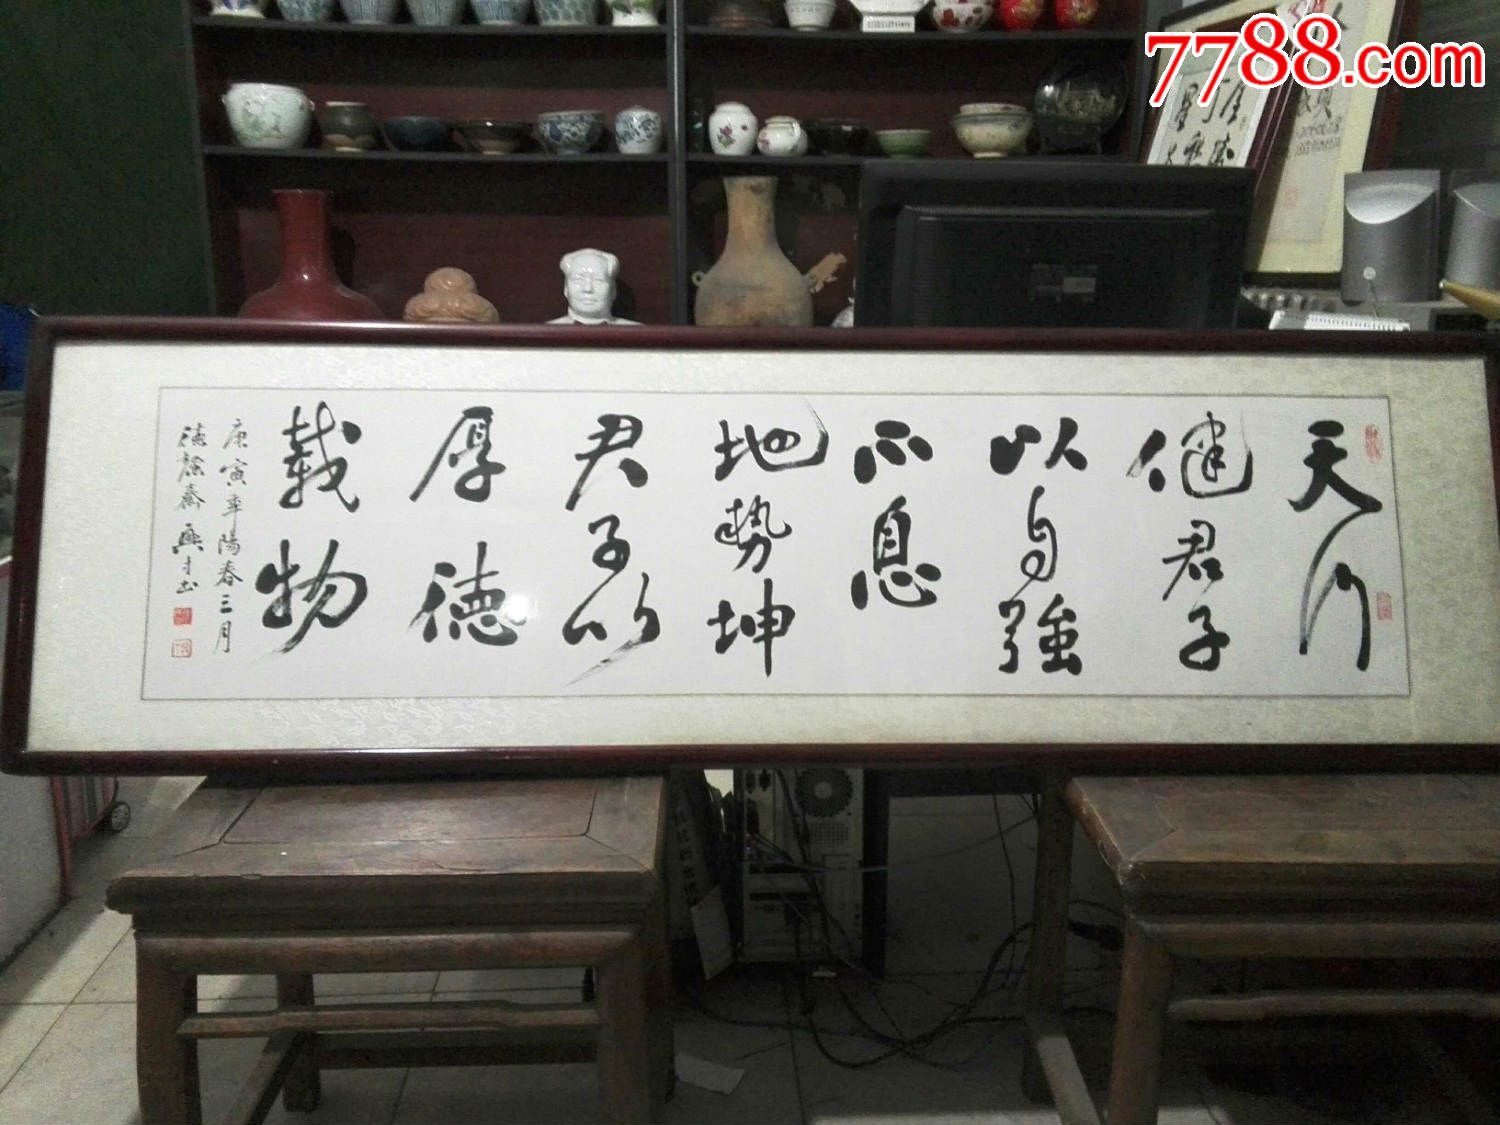 7788.com
天行
健君子
以自強
不息
地勢坤
君子以
厚德
載物
庚寅年陽春三月